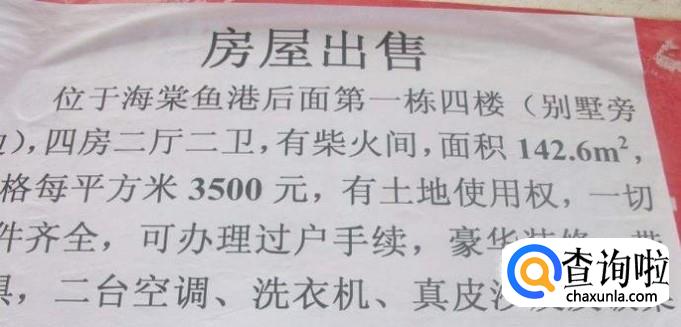 房屋出售
位于海棠鱼港后面第一栋四楼（别墅旁
），四房二厅二卫，有柴火间，面积 142.6m²，
格每平方米 3500 元，有土地使用权，一切
件齐全，可办理过户手续，豪华装修，带
具，二台空调、洗衣机、真皮沙
查询啦
chaxunla.com